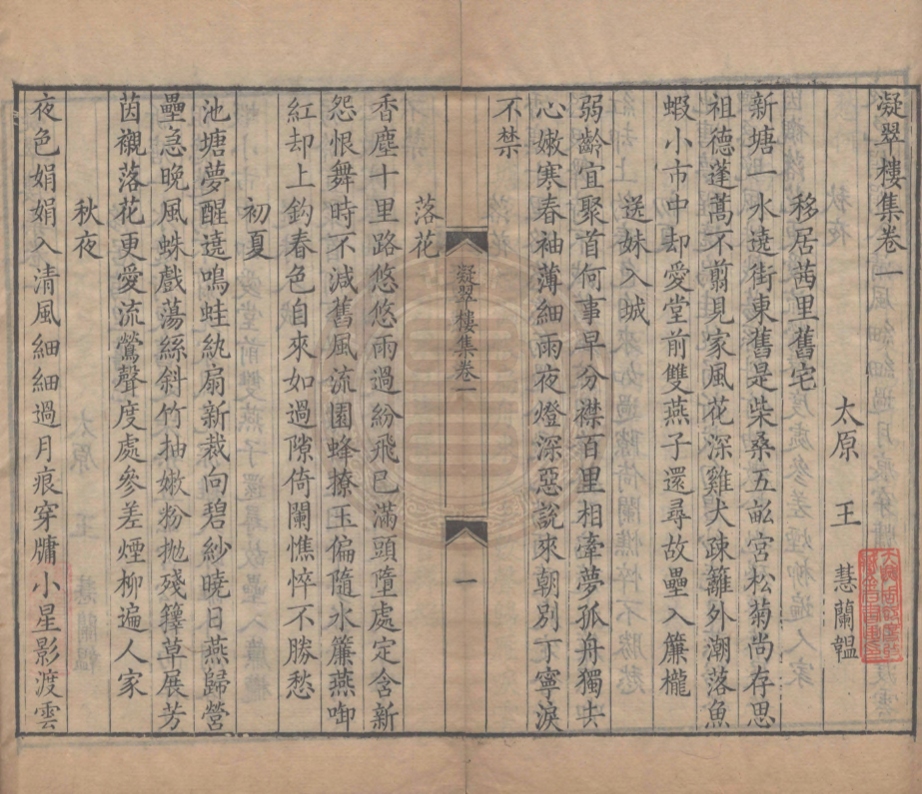 凝翠樓集卷一
太原 王 慧蘭韞
移居茜里舊宅
新塘一水遶街東舊是柴桑五畝宮松菊尚存思
祖德蓬蒿不翦見家風花深雞犬疎籬外潮落魚
蝦小市中却愛堂前雙燕子還尋故壘入簾櫳
送妹入城
弱齡宜聚首何事早分襟百里相牽夢孤舟獨去
心嫩寒春袖薄細雨夜燈深惡說來朝別丁寧淚
不禁
凝翠樓集卷一
一
落花
香塵十里路悠悠雨過紛飛已滿頭墮處定含新
怨恨舞時不減舊風流園蜂撩玉偏隨水簾燕啣
紅却上鈎春色自來如過隙倚闌憔悴不勝愁
初夏
池塘夢醒遠鳴蛙紈扇新裁向碧紗曉日燕歸營
壘急晚風蛛戲蕩絲斜竹抽嫩粉拋殘籜草展芳
茵襯落花更愛流鶯聲度處參差煙柳遍人家
秋夜
夜色娟娟入清風細細過月痕穿牖小星影渡雲